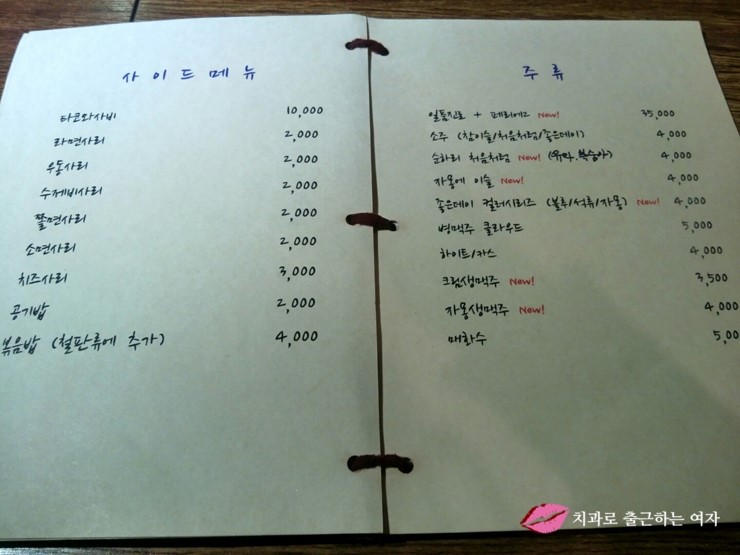 사이드메뉴
타코와사비 10,000
라면사리 2,000
우동사리 2,000
수제비사리 2,000
쫄면사리 2,000
소면사리 2,000
치즈사리 3,000
공기밥 2,000
볶음밥 (철판류에 추가) 4,000
주류
일품진로 + 페리에2 New! 35,000
소주 (참이슬/처음처럼/좋은데이) 4,000
순하리 처음처럼 New! (유자,복숭아) 4,000
자몽에 이슬 New! 4,000
좋은데이 컬러시리즈 (블루/석류/자몽) New! 4,000
병맥주 클라우드 5,000
하이트/카스 4,000
크림생맥주 New! 3,500
자몽생맥주 New! 4,000
매화수 5,00
치과로 출근하는 여자